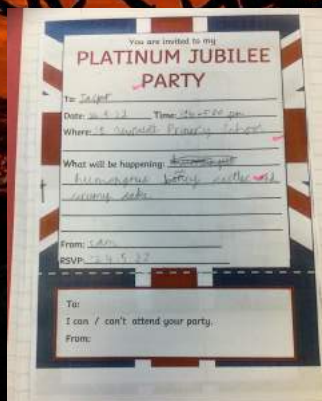 You are invited to my
PLATINUM JUBILEE
PARTY
To: Jasper
Date: 26.5.22 Time: pm
Where: Primary School
What will be happening:
humongous castle and
creamy cake.
From: Sam
RSVP: 24.5.22
To:
I can / can't attend your party.
From: